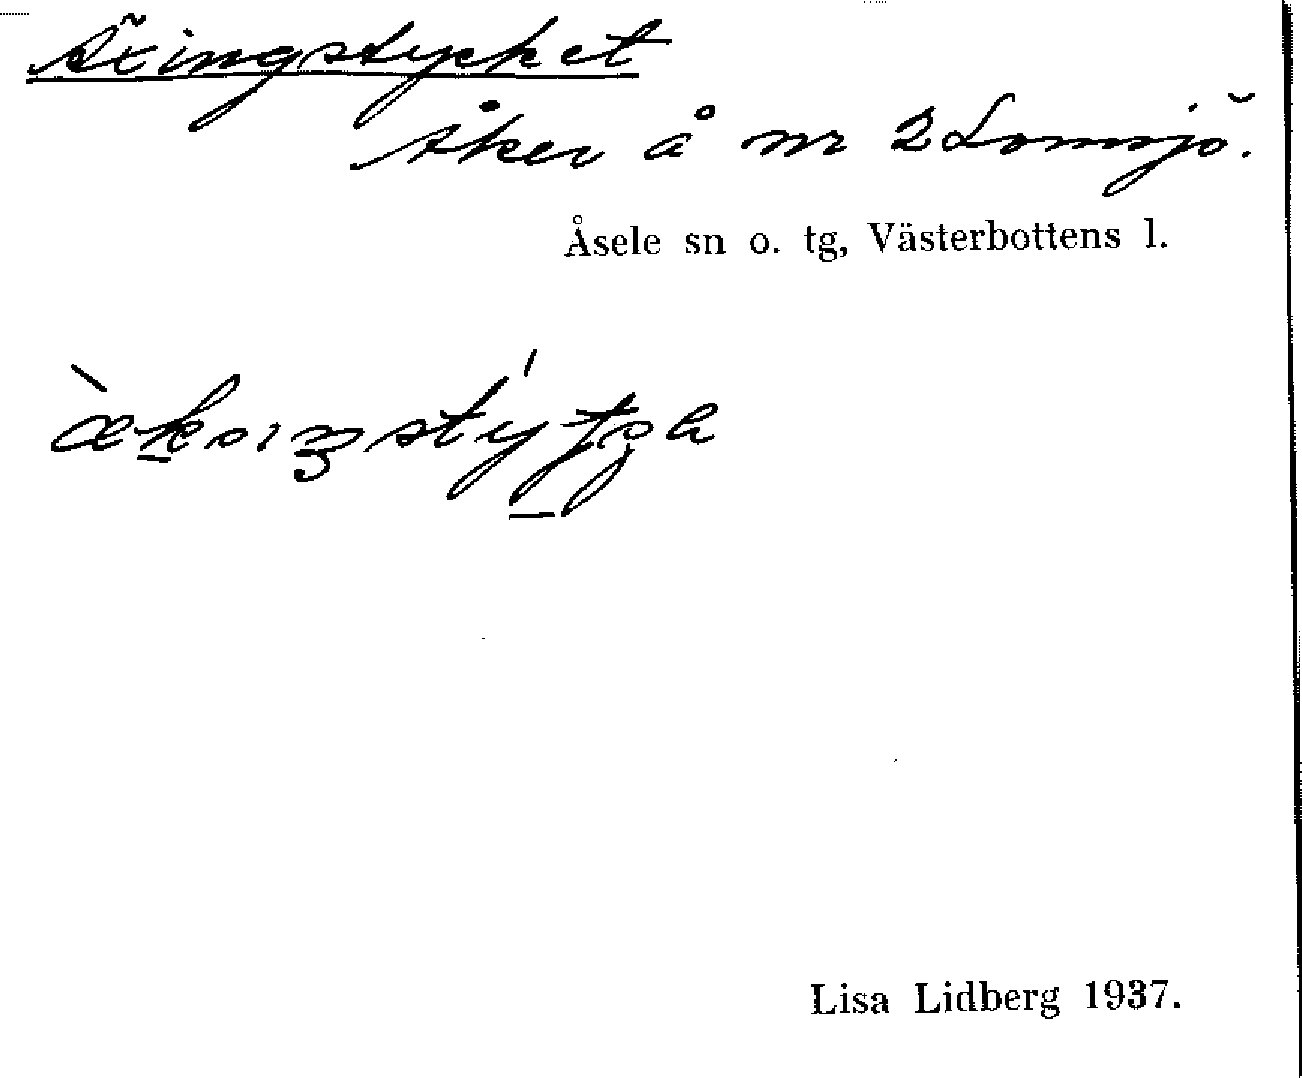 Äxingstycket
Åker å nr 2 Lomsjö.
Åsele sn o. tg, Västerbottens l.
Lisa Lidberg 1937.